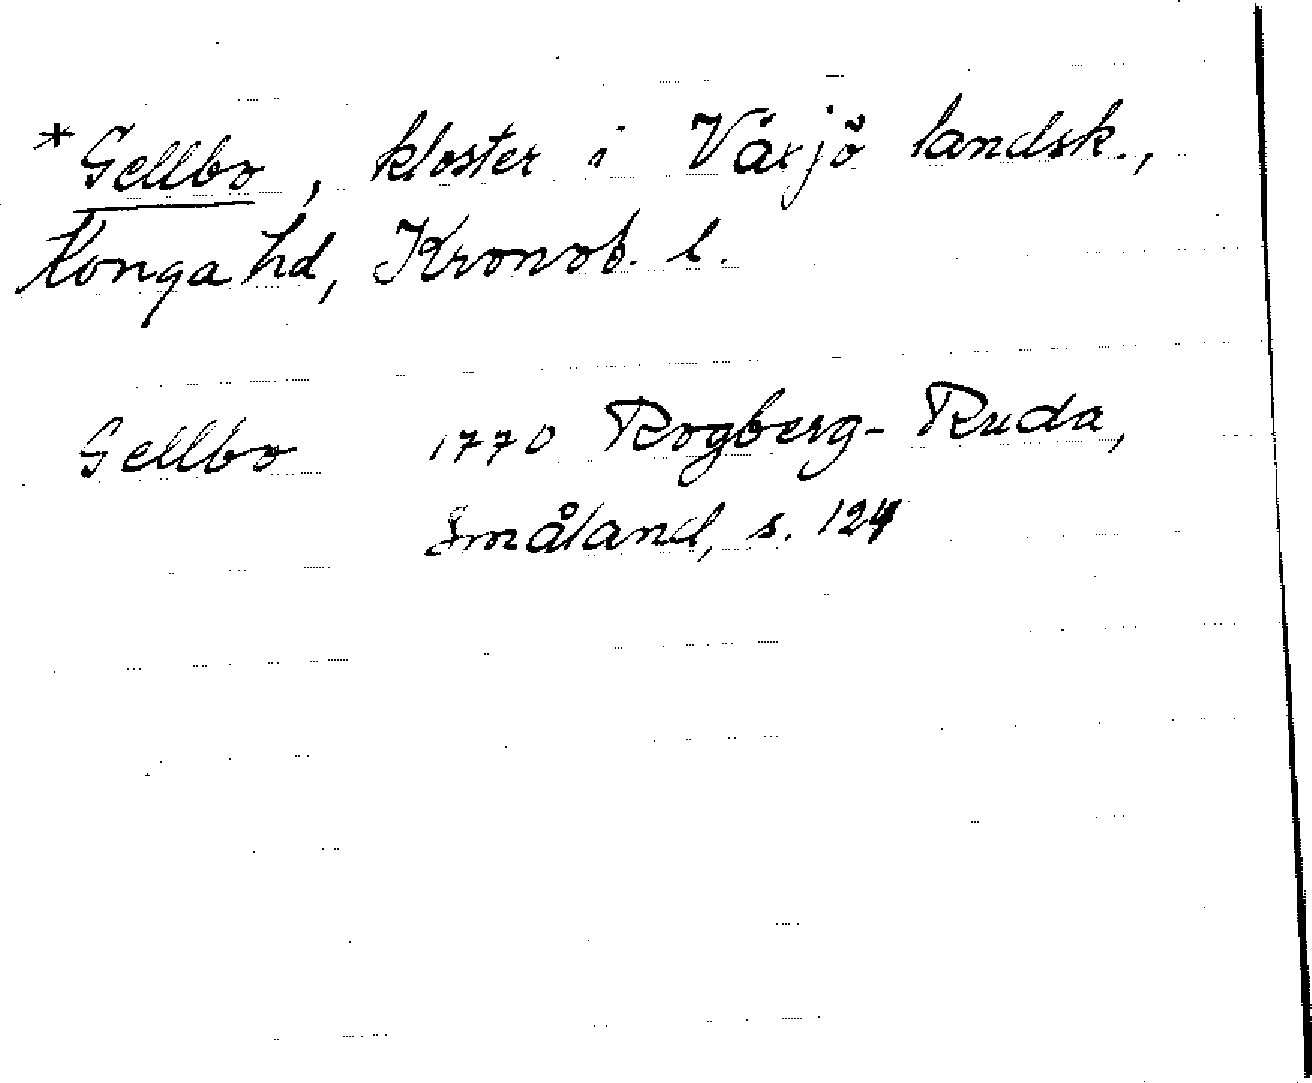 *Gellbo, kloster i Växjö landsk.,
Konga hd, Kronob. l.
Gellbo 1770 Rogberg-Ruda,
Småland, s. 124